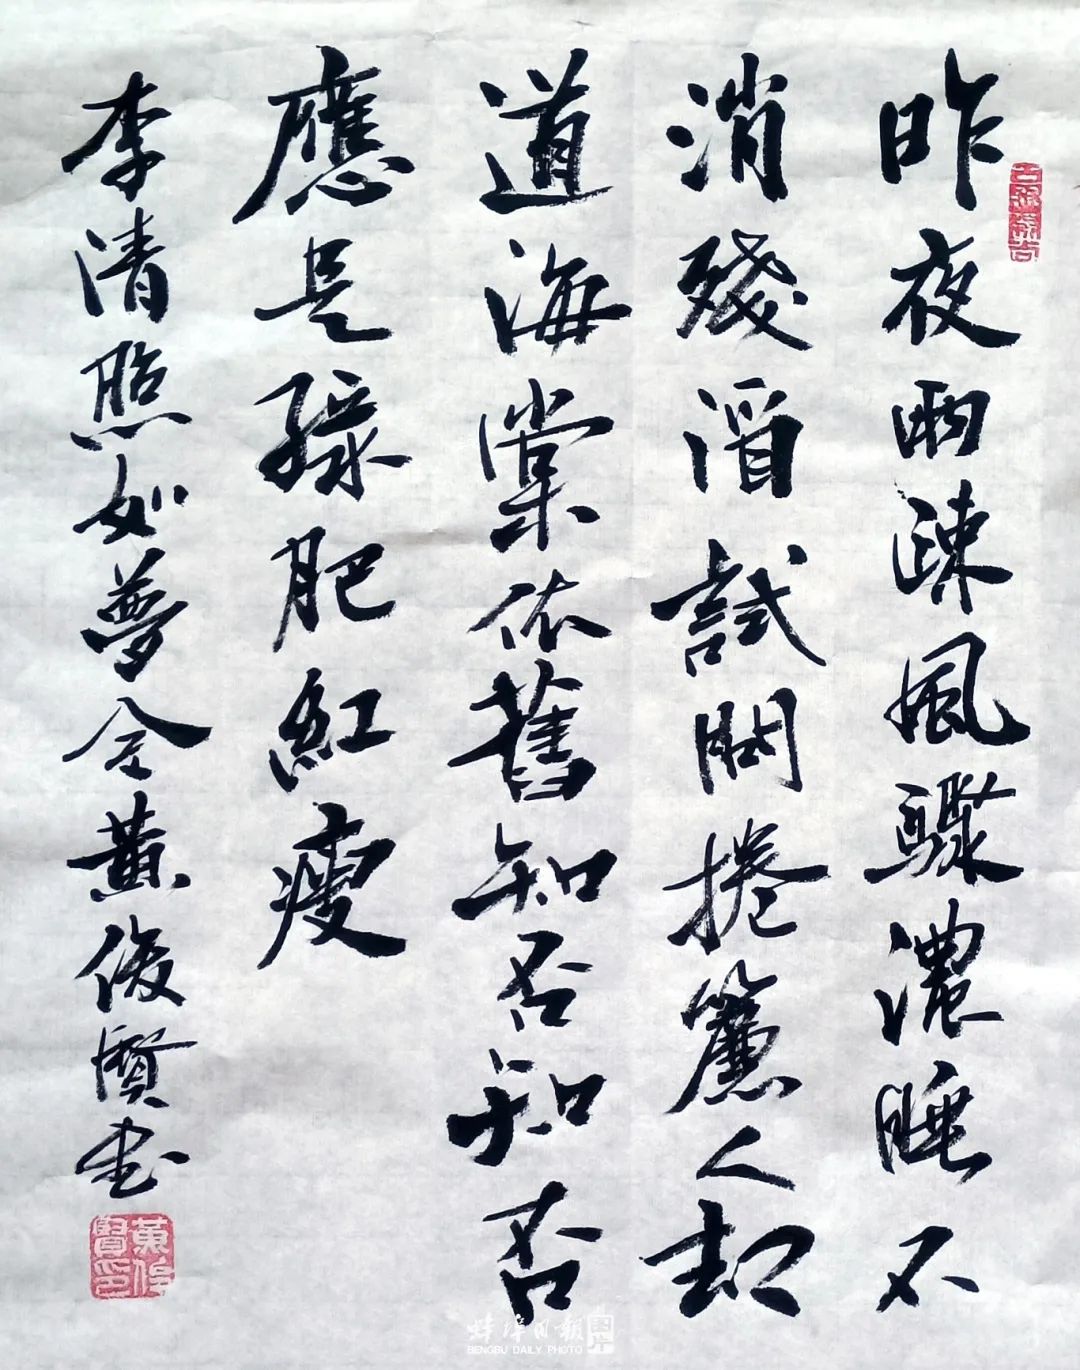 昨夜雨疎風驟濃睡不
消殘酒試問捲簾人却
道海棠依舊知否知否
應是綠肥紅瘦
李清照如夢令黃俊賢書
蚌埠日報
BENGBU DAILY PHOTO